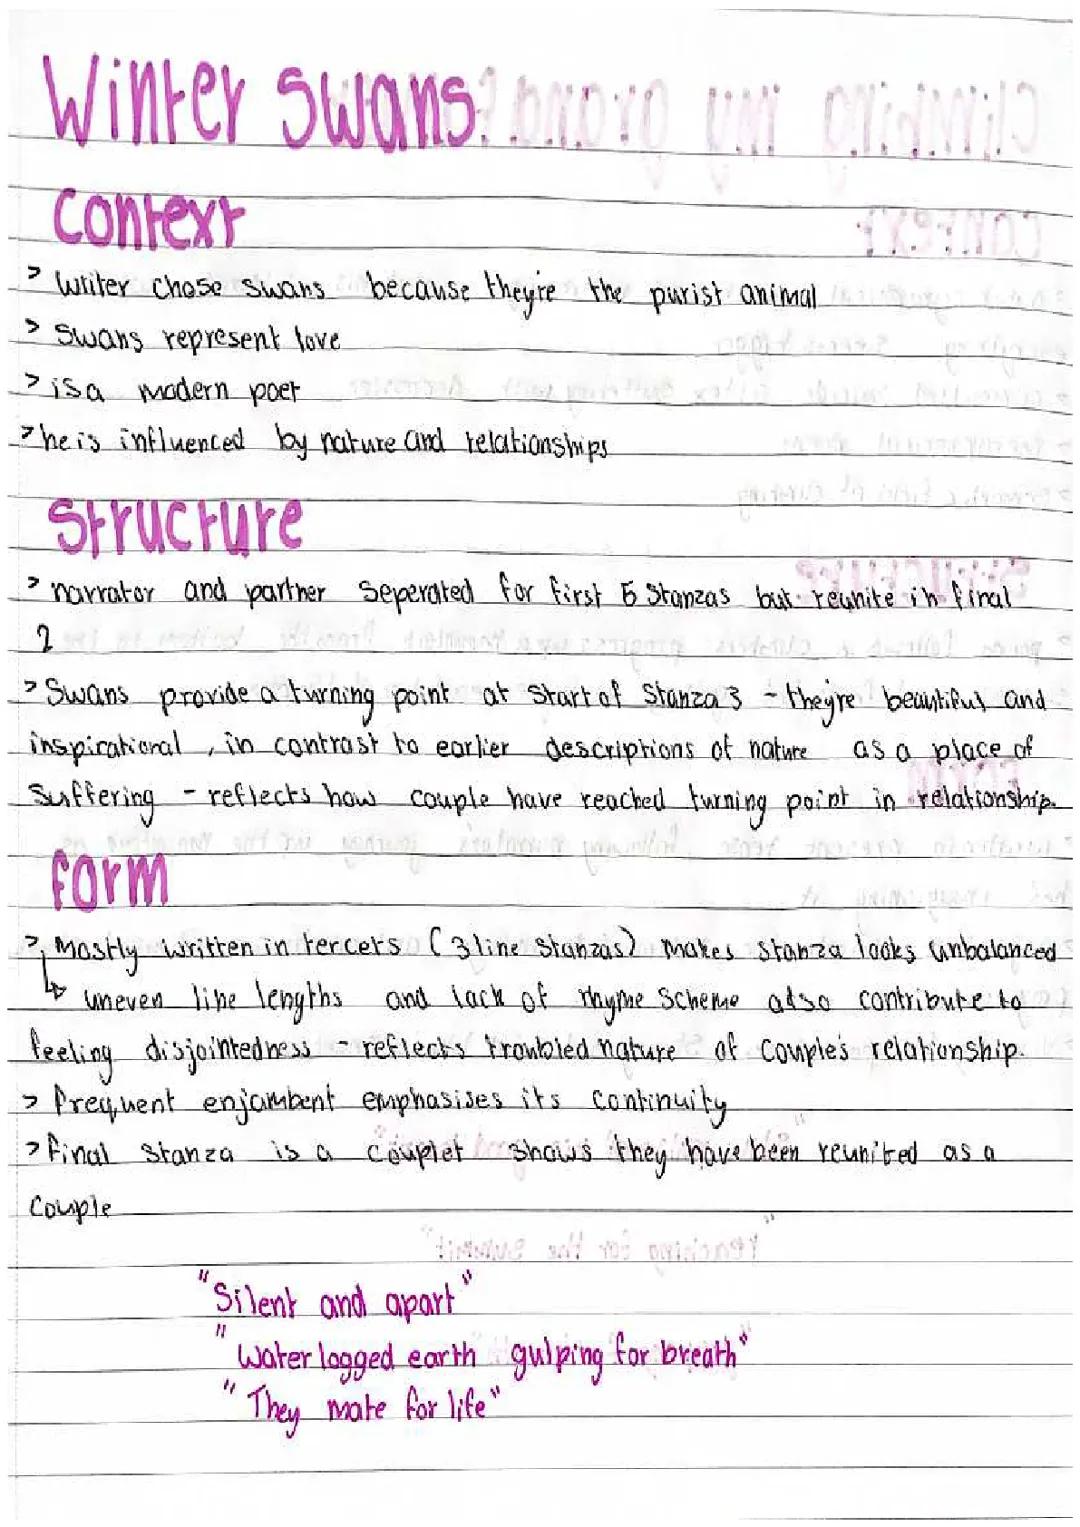 Winter Swans
Context
> Writer chose swans because they're the purist animal
> Swans represent love
> is a modern poet
> he is influenced by nature and relationships
Structure
> narrator and partner seperated for first 5 Stanzas but reunite in final
2
> Swans provide a turning point at Start of Stanza 3 - they're beautiful and
inspirational, in contrast to earlier descriptions of nature as a place of
Suffering - reflects how couple have reached turning point in relationship.
form
> Mostly written in tercets (3 line Stanzas) Makes Stanza looks unbalanced
↳ uneven line lengths and lack of rhyme Scheme also contribute to
feeling disjointedness - reflects troubled nature of couple's relationship.
> frequent enjambent emphasises its continuity
> final Stanza is a couplet shows they have been reunited as a
couple
"Silent and apart"
"Waterlogged earth gulping for breath"
"They mate for life"